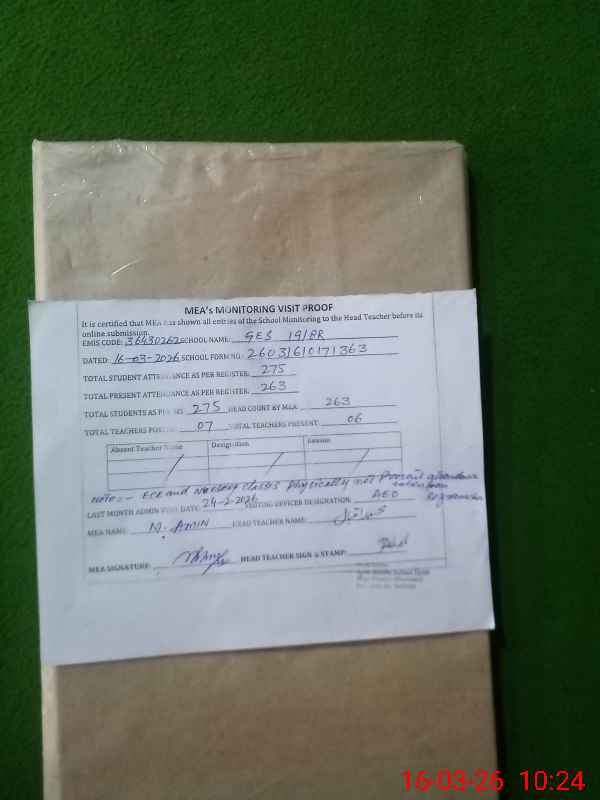 MEA's MONITORING VISIT PROOF
It is certified that MEA has shown all entries of the School Monitoring to the Head Teacher before its
online submission.
EMIS CODE: 36430262 SCHOOL NAME: GES 19/BR
DATED: 16-03-2026 SCHOOL FORM NO: 26031610171363
TOTAL STUDENT ATTENDANCE AS PER REGISTER: 275
TOTAL PRESENT ATTENDANCE AS PER REGISTER: 263
TOTAL STUDENTS AS PER 275 HEAD COUNT BY MEA 263
TOTAL TEACHERS POSTED 07 TOTAL TEACHERS PRESENT: 06
Absent Teacher Name Designation Reason
Note:- ECE and Nursery Classes Physically not Present attendance taken from
LAST MONTH ADMIN VISIT DATE: 24-2-2026 VISITING OFFICER DESIGNATION: AEO
MEA NAME: M. AMIN HEAD TEACHER NAME:
MEA SIGNATURE: HEAD TEACHER SIGN & STAMP:
16-03-26 10:24